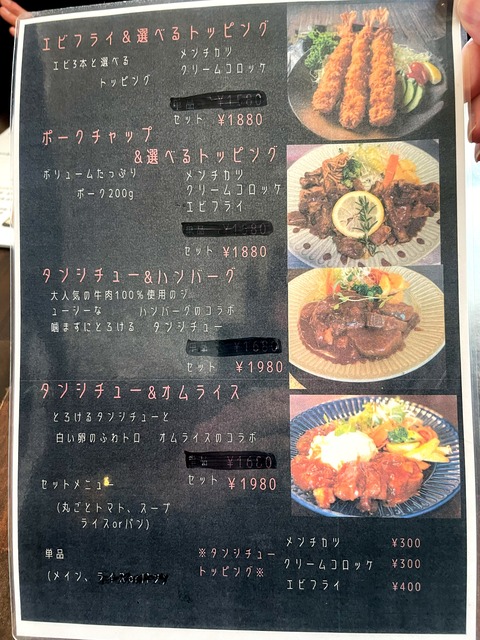 エビフライ&選べるトッピング
エビ3本と選べる
トッピング
メンチカツ
クリームコロッケ
セット ¥1880
ポークチャップ
&選べるトッピング
ボリュームたっぷり
ポーク200g
メンチカツ
クリームコロッケ
エビフライ
セット ¥1880
タンシチュー&ハンバーグ
大人気の牛肉100%使用のジ
ューシーな ハンバーグのコラボ
噛まずにとろける タンシチュー
セット ¥1980
タンシチュー&オムライス
とろけるタンシチューと
白い卵のふわトロ オムライスのコラボ
セット ¥1980
セットメニュー
(丸ごとトマト、スープ
ライスorパン)
単品
(メイン、
※タンシチュー
トッピング※
メンチカツ ¥300
クリームコロッケ ¥300
エビフライ ¥400